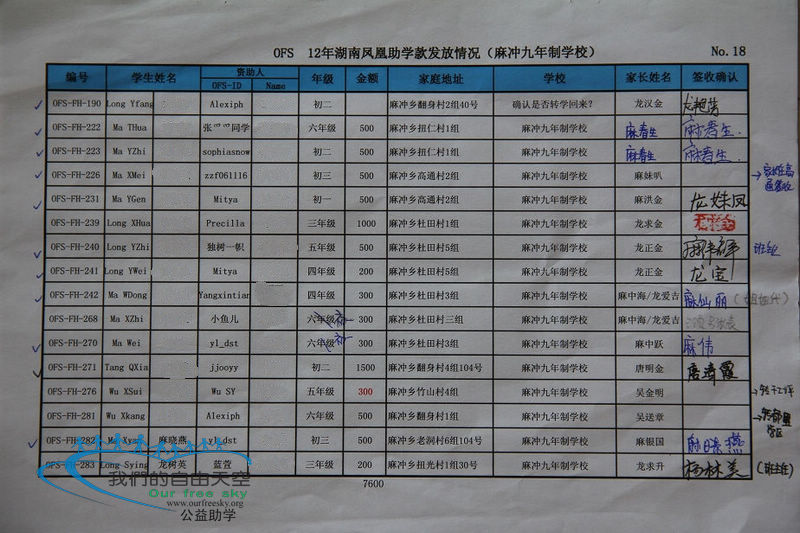 OFS 12年湖南凤凰助学款发放情况（麻冲九年制学校） No.18
编号 学生姓名 资助人 OFS-ID Name 年级 金额 家庭地址 学校 家长姓名 签收确认
OFS-FH-190 Long Yfang Alexiph 初二 麻冲乡翻身村2组40号 确认是否转学回来? 龙汉金
OFS-FH-222 Ma THua 张爫爫同学 六年级 500 麻冲乡扭仁村1组 麻冲九年制学校 麻春生 麻春生
OFS-FH-223 Ma YZhi sophiasnow 初二 500 麻冲乡扭仁村1组 麻冲九年制学校 麻春生 麻春生
OFS-FH-226 Ma XMei zzf061116 初三 500 麻冲乡高通村2组 麻冲九年制学校 麻妹叭
OFS-FH-231 Ma YGen Mitya 初一 500 麻冲乡高通村2组 麻冲九年制学校 麻洪金 龙妹凤
OFS-FH-239 Long XHua Precilla 三年级 1000 麻冲乡杜田村1组 麻冲九年制学校 龙求金
OFS-FH-240 Long YZhi 独树一帜 五年级 500 麻冲乡杜田村5组 麻冲九年制学校 龙正金
OFS-FH-241 Long YWei Mitya 四年级 200 麻冲乡杜田村5组 麻冲九年制学校 龙正金 龙宝
OFS-FH-242 Ma WDong Yangxintian 四年级 300 麻冲乡杜田村3组 麻冲九年制学校 麻中海/龙爱吉 麻仙丽
OFS-FH-268 Ma XZhi 小鱼儿 六年级 300 麻冲乡杜田村三组 麻冲九年制学校 麻中海/龙爱吉
OFS-FH-270 Ma Wei yl_dst 六年级 300 麻冲乡杜田村3组 麻冲九年制学校 麻中跃 麻伟
OFS-FH-271 Tang QXia jjooyy 初二 1500 麻冲乡翻身村4组104号 麻冲九年制学校 唐明金 唐清霞
OFS-FH-276 Wu XSui Wu SY 五年级 300 麻冲乡竹山村4组 麻冲九年制学校 吴金明
OFS-FH-281 Wu Xkang Alexiph 六年级 500 麻冲乡翻身村1组 麻冲九年制学校 吴送章
OFS-FH-282 Ma Xyan 麻晓燕 yl_dst 初三 500 麻冲乡老洞村6组104号 麻冲九年制学校 麻银国 麻晓燕
OFS-FH-283 Long Sying 龙树英 蓝萱 三年级 200 麻冲乡扭光村1组30号 麻冲九年制学校 龙求升 杨林美
7600
我们的自由天空
Our free sky
www.ourfreesky.org
公益助学